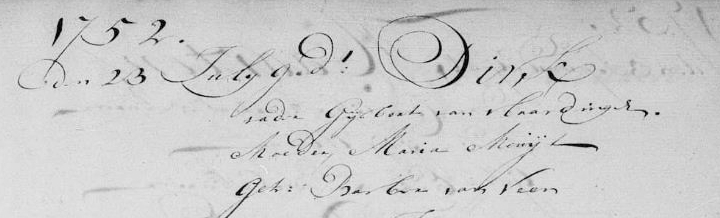 1752.
den 23 July g.d: Dirk
vader Gijsbert van vlaardingen.
Moeder Maria
Get: Barbera van Veen